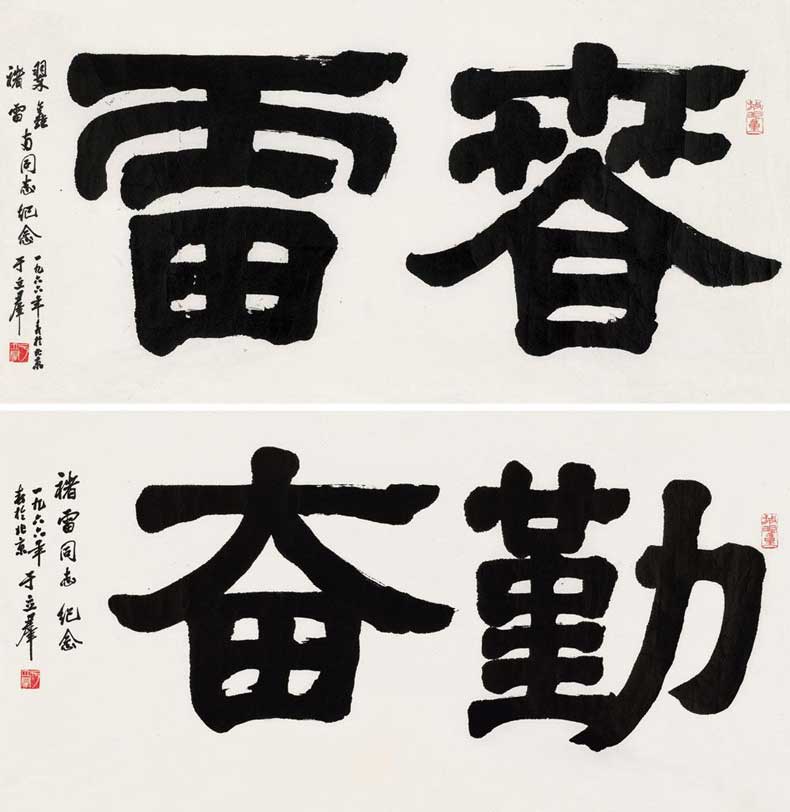 春雷
褚雷同志紀念
一九六六年春於北京
于立群
勤奋
褚雷同志紀念
一九六六年
春於北京
于立群